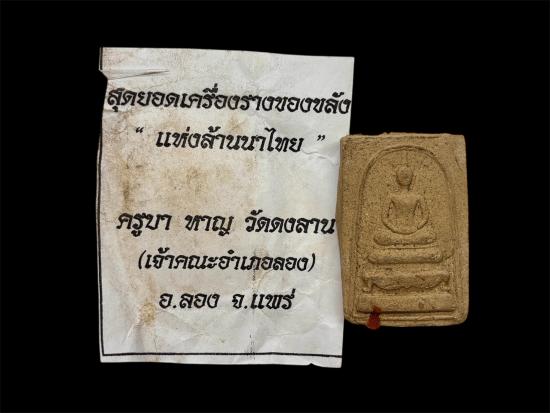 สุดยอดเครื่องรางของขลัง
“ แห่งล้านนาไทย ”
ครูบา หาญ วัดดงลาน
(เจ้าคณะอำเภอลอง)
อ.ลอง จ.แพร่